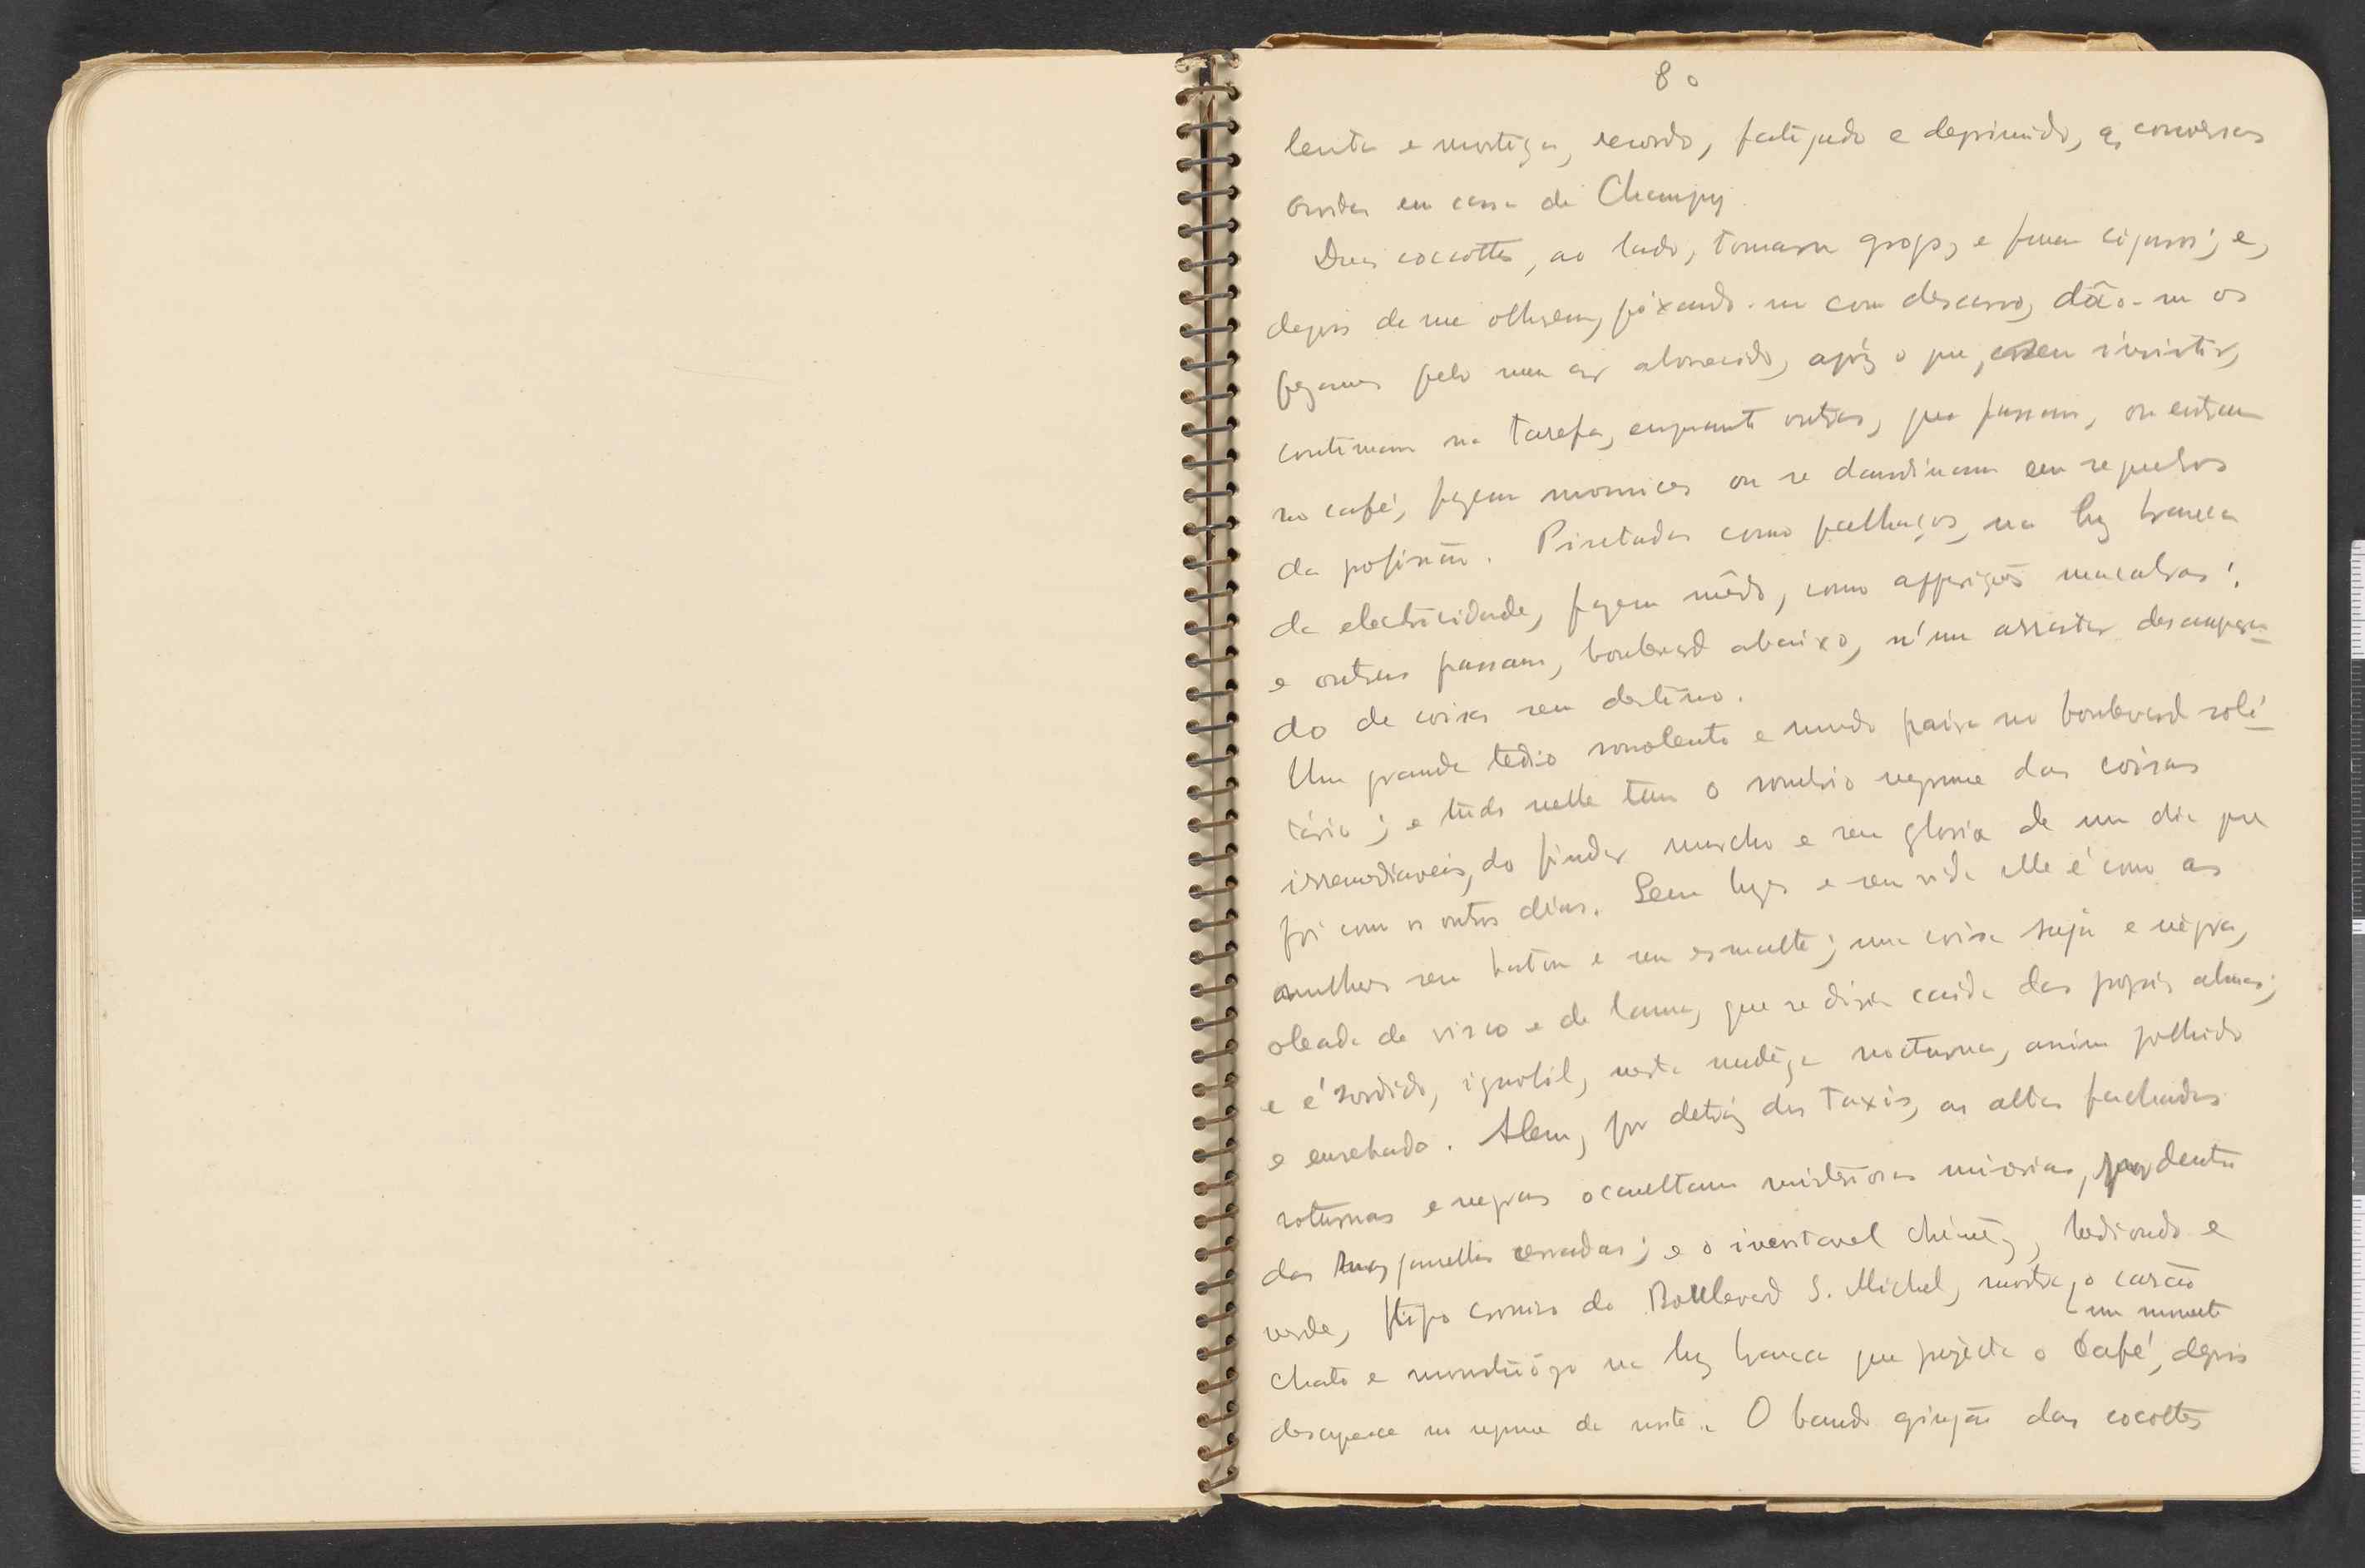 80
lenta e mortiça, recordo, fatigado e deprimido, as conversas
ouvidas em casa de Champy
Duas coccottes, ao lado, tomam grogs, e fumam cigarros; e,
depois de me olharem, fixando-me com descaro, dão-me os
pezames pelo meu ar aborrecido, após o que, sem insistir,
continuam na tarefa, enquanto outras, que passam, ou entram
no café, fazem momices ou se dandinam em requebros
da profissão. Pintadas como palhaços, na luz branca
da electricidade, fazem mêdo, como apparições macabras;
e outras passam, boulevard abaixo, n'um arrastar desampara-
do de coisas sem destino.
Um grande tedio sonolento e mudo paira no boulevard soli-
tário; e tudo nelle tem o sombrio negrume das coisas
irremediaveis, do findar murcho e sem gloria de um dia que
foi como os outros dias. Sem luzes e sem vida elle é como as
mulheres sem baton e sem esmalte; uma coisa suja e negra,
oleada de visco e de lama, que se diria caida das proprias almas;
e é sordido, ignobil, nesta nudêza nocturna, assim
e ensebado. Alem, por detráz dos taxis, as altas fachadas
soturnas e negras occultam misteriosas miserias, por dentro
das janellas cerradas; e o inevitavel chinêz, hediondo e
verde, tipo cronico do Boulevard S. Michel, mostra, o carão
um momento
chato e monstruôso na luz branca que projecta o Café, depois
desaparece no negrume da noite. O bando das cocottes